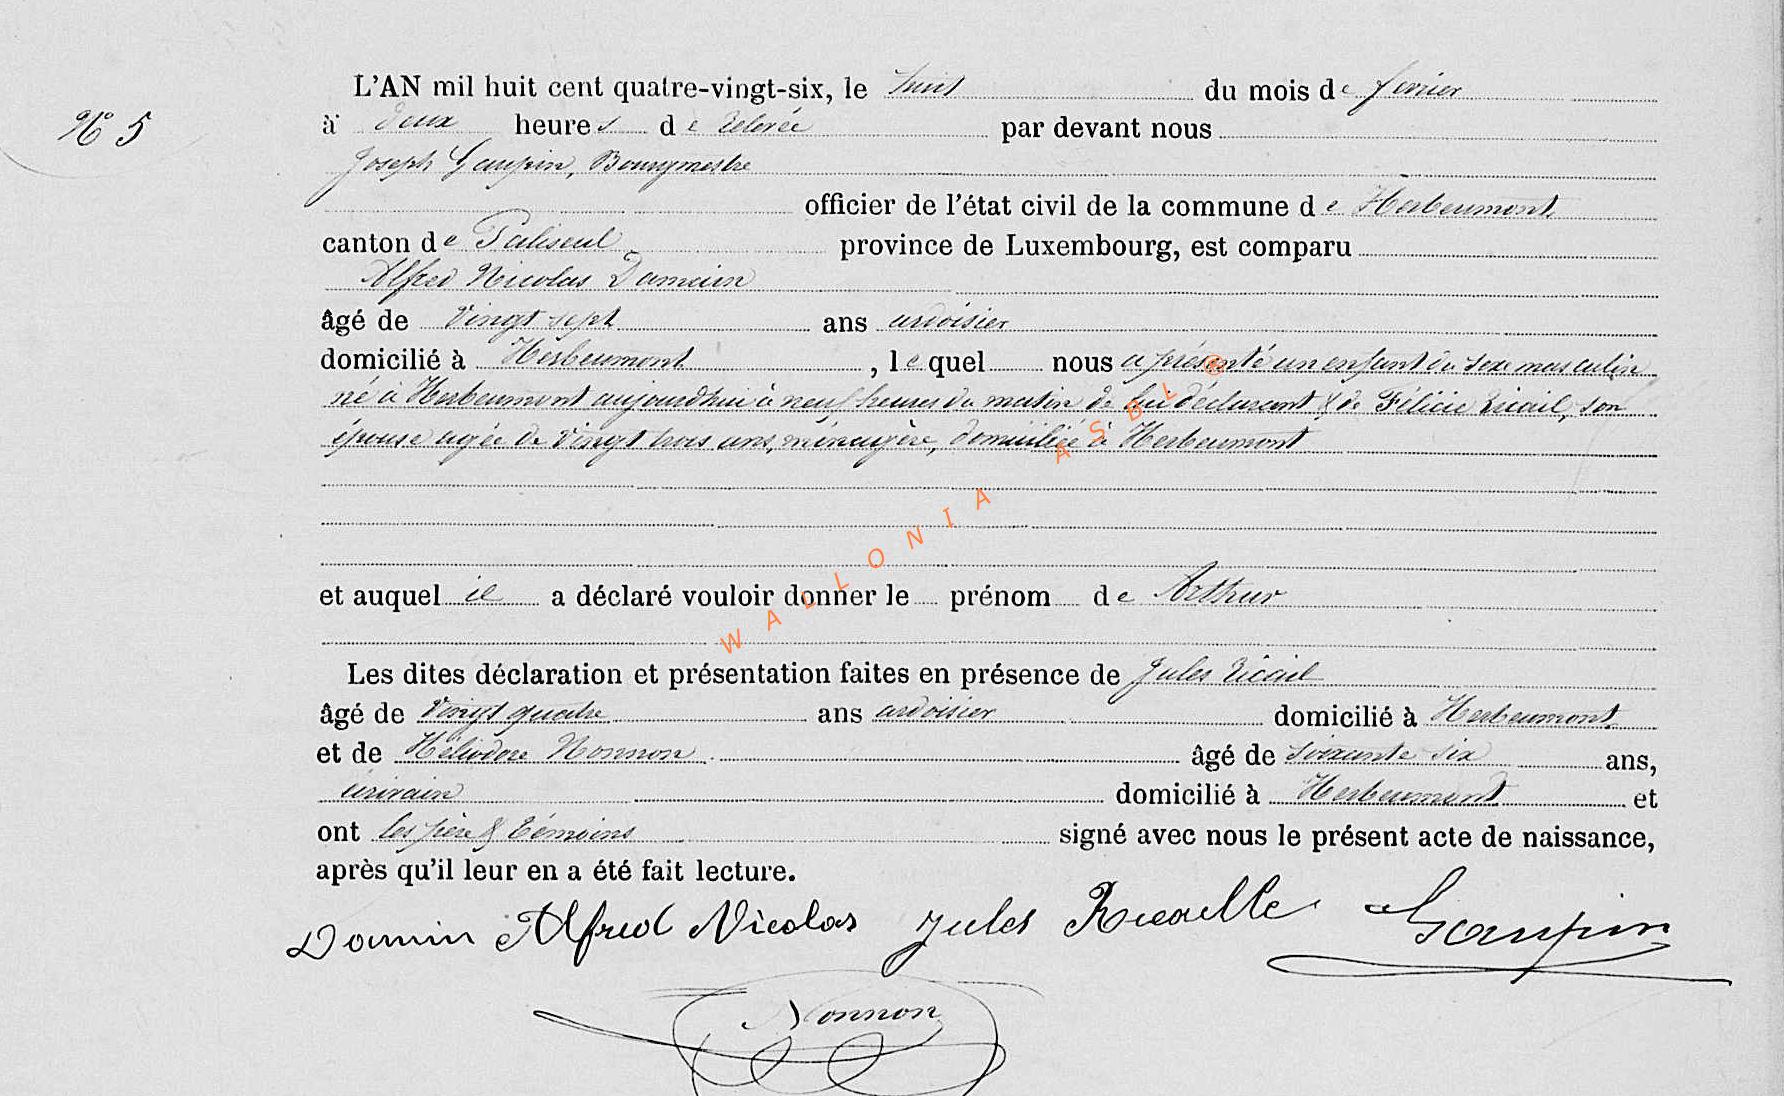 N° 5
L'AN mil huit cent quatre-vingt-six, le huit du mois de fevrier
à deux heures de relevée par devant nous
Joseph Gaupin, Bourgmestre
officier de l'état civil de la commune de Herbeumont
canton de Paliseul province de Luxembourg, est comparu
Alfred Nicolas Damain
âgé de vingt sept ans ardoisier
domicilié à Herbeumont, lequel nous a présenté un enfant du sexe masculin
né à Herbeumont aujourdhui à neuf heures du matin de lui déclarant & de Félicie Ricail, son
épouse agée de vingt trois ans, ménagère, domiciliée à Herbeumont
et auquel il a déclaré vouloir donner le prénom de Arthur
Les dites déclaration et présentation faites en présence de Jules Ricail
âgé de vingt quatre ans ardoisier domicilié à Herbeumont
et de Héliodore Nonnon âgé de soixante six ans,
écrivain domicilié à Herbeumont et
ont les père & témoins signé avec nous le présent acte de naissance,
après qu'il leur en a été fait lecture.
Damin Alfred Nicolas Jules Ricaille Gaupin
Nonnon
WALLONIA ASBL ®